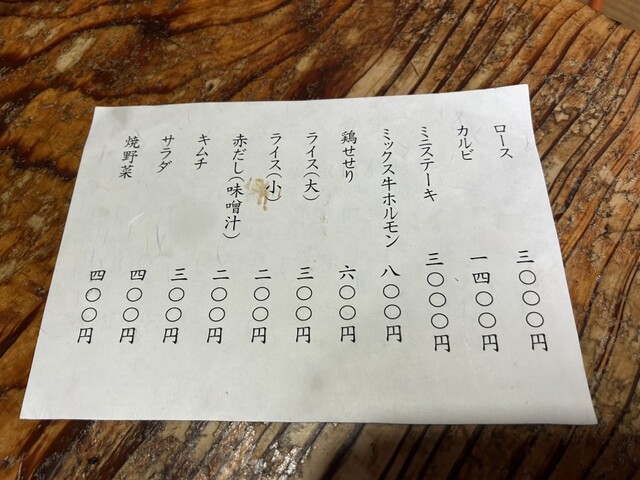 ロース 三〇〇〇円
カルビ 一四〇〇円
ミニステーキ 三〇〇〇円
ミックス牛ホルモン 八〇〇円
鶏せせり 六〇〇円
ライス(大) 三〇〇円
ライス(小) 二〇〇円
赤だし(味噌汁) 二〇〇円
キムチ 三〇〇円
サラダ 四〇〇円
焼野菜 四〇〇円